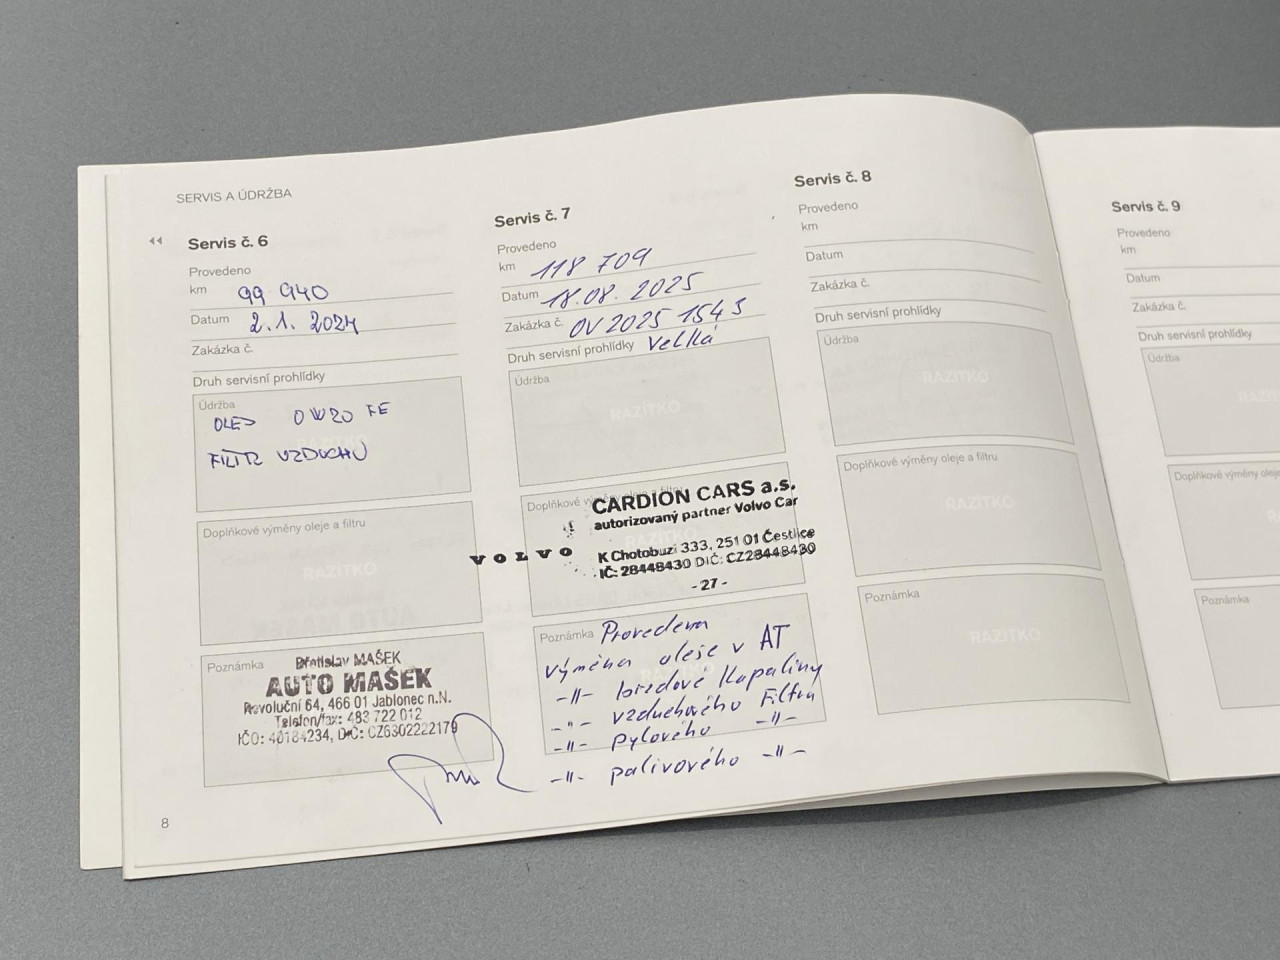 SERVIS A ÚDRŽBA
Servis č. 6
Provedeno
km 99 940
Datum 2.1. 2024
Zakázka č.
Druh servisní prohlídky
Údržba
OLEJ 0W20 FE
FILTR VZDUCHU
Doplňkové výměny oleje a filtru
RAZÍTKO
Poznámka
Břetislav MAŠEK
AUTO MAŠEK
Revoluční 64, 466 01 Jablonec n.N.
Telefon/fax: 483 722 012
IČO: 40184234, DIČ: CZ6302222179
8
Servis č. 7
Provedeno
km 118 709
Datum 18.08. 2025
Zakázka č. OV 2025 1543
Druh servisní prohlídky Velká
Údržba
RAZÍTKO
Doplňkové výměny oleje a filtru
VOLVO
CARDION CARS a.s.
autorizovaný partner Volvo Car
K Chotobuzi 333, 251 01 Čestlice
IČ: 28448430 DIČ: CZ28448430
- 27 -
Poznámka Provedena
výměna oleje v AT
-"- brzdové kapaliny
-"- vzduchového Filtru
-"- pylového -"-
-"- palivového -"-
Servis č. 8
Provedeno
km
Datum
Zakázka č.
Druh servisní prohlídky
Údržba
RAZÍTKO
Doplňkové výměny oleje a filtru
RAZÍTKO
Poznámka
RAZÍTKO
Servis č. 9
Provedeno
km
Datum
Zakázka č.
Druh servisní prohlídky
Údržba
Doplňkové výměny oleje
Poznámka